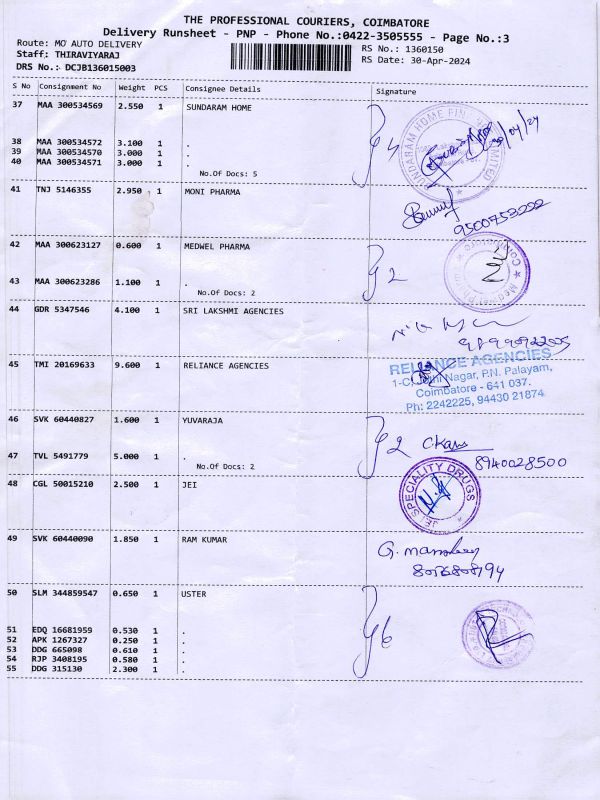 THE PROFESSIONAL COURIERS, COIMBATORE
Delivery Runsheet - PNP - Phone No.:0422-3505555 - Page No.:3
Route: MO AUTO DELIVERY
RS No.: 1360150
Staff: THIRAVIYARAJ
RS Date: 30-Apr-2024
DRS No.: DCJB136015003
S No Consignment No Weight PCS Consignee Details Signature
37 MAA 300534569 2.550 1 SUNDARAM HOME
38 MAA 300534572 3.100 1 .
39 MAA 300534570 3.000 1 .
40 MAA 300534571 3.000 1 .
No.Of Docs: 5
4
SUNDARAM HOME FIN LIMITED
30/04/24
41 TNJ 5146355 2.950 1 MONI PHARMA
42 MAA 300623127 0.600 1 MEDWEL PHARMA
43 MAA 300623286 1.100 1 .
No.Of Docs: 2
2
Medwel Pharma ★ Coimbatore ★
44 GDR 5347546 4.100 1 SRI LAKSHMI AGENCIES
45 TMI 20169633 9.600 1 RELIANCE AGENCIES
RELIANCE AGENCIES
Nagar, P.N. Palayam,
Coimbatore - 641 037.
Ph: 2242225, 94430 21874
46 SVK 60440827 1.600 1 YUVARAJA
47 TVL 5491779 5.000 1 .
No.Of Docs: 2
2
8940028500
48 CGL 50015210 2.500 1 JEI
JEI SPECIALITY DRUGS
49 SVK 60440090 1.850 1 RAM KUMAR
G.
50 SLM 344859547 0.650 1 USTER
51 EDQ 16681959 0.530 1 .
52 APK 1267327 0.250 1 .
53 DDG 665098 0.610 1 .
54 RJP 3408195 0.580 1 .
55 DDG 315130 2.300 1 .
6